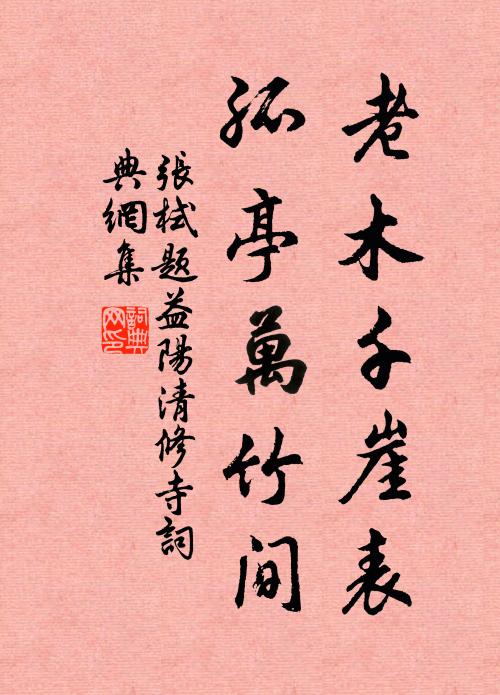 老木千崖表
孤亭萬竹間
張栻題益陽清修寺詞
典網集
詞典
网印